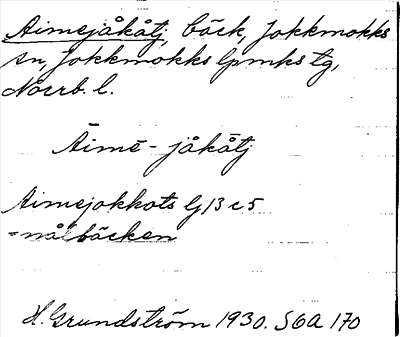 Aimejåkåtj, bäck, Jokkmokks
sn, Jokkmokks lpmks tg,
Norrb. l.
Āimē - jåkåtj
Aimejokkots G 13 c 5
=nålbäcken
H. Grundström 1930. S6A 170